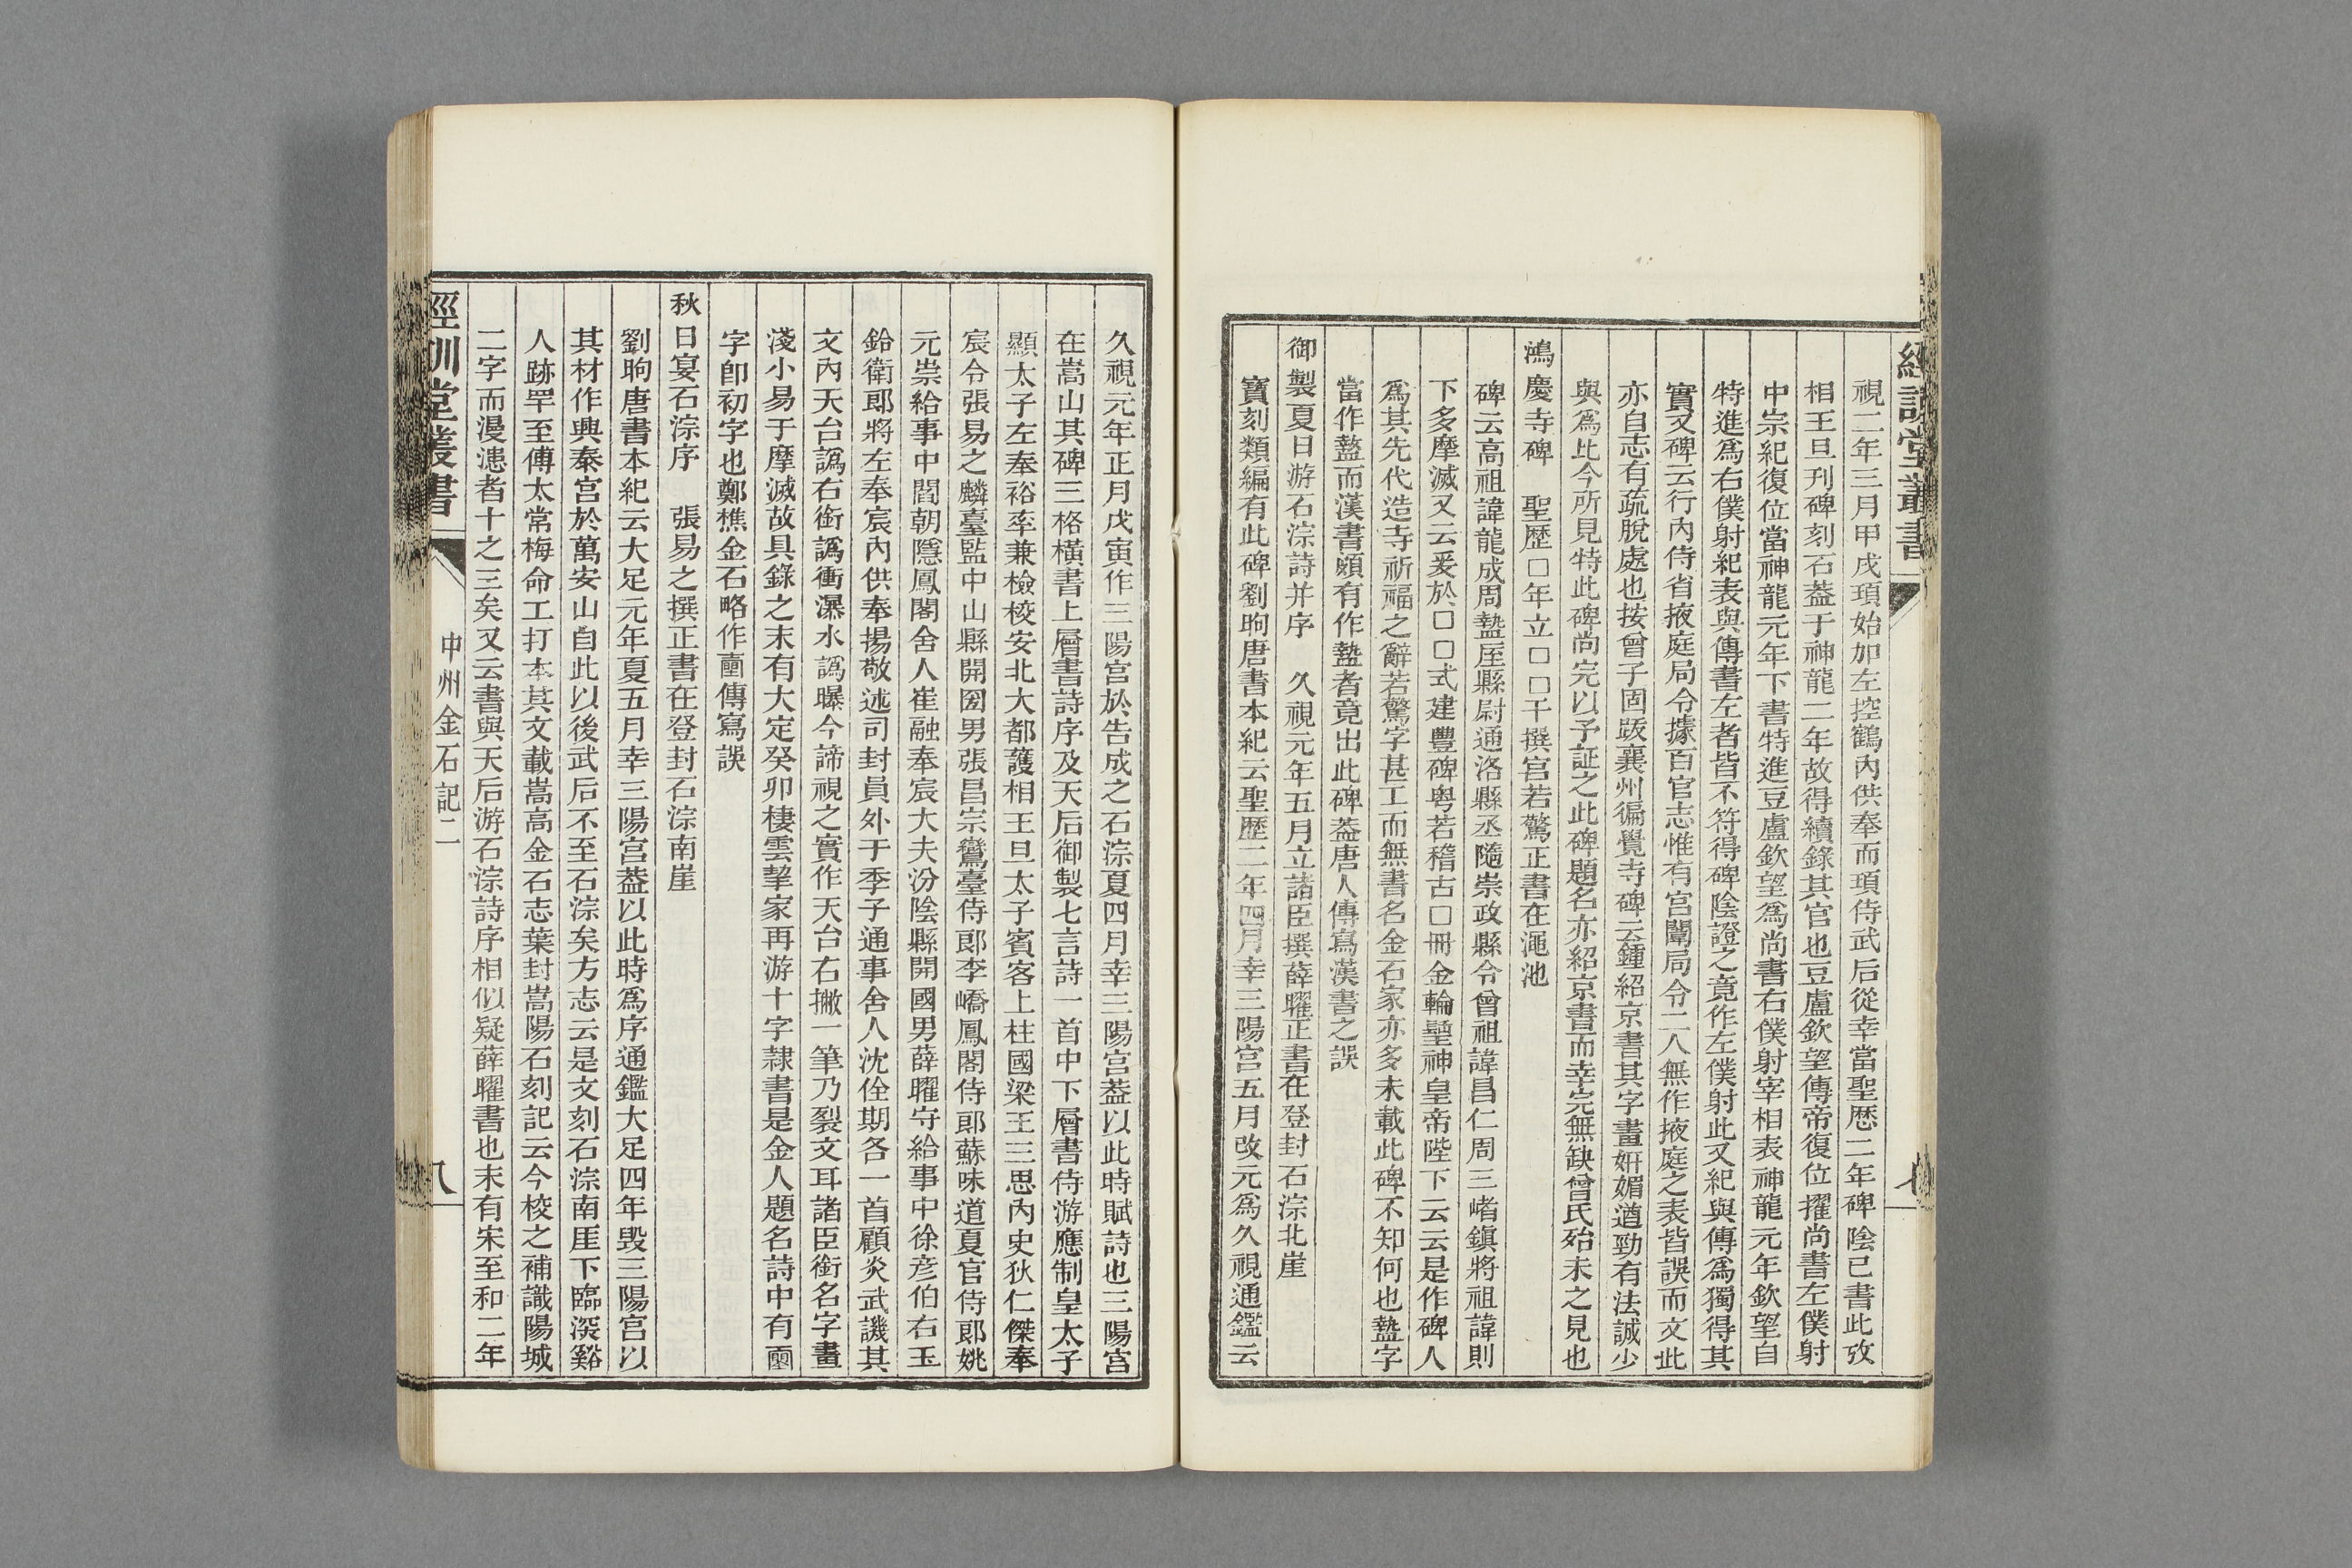 經訓堂叢書
視二年三月甲戌頊始加左控鶴內供奉而頊侍武后從幸當聖歷二年碑陰已書此攷
相王旦刋碑刻石葢于神龍二年故得續錄其官也豆盧欽望傳帝復位擢尚書左僕射
中宗紀復位當神龍元年下書特進豆盧欽望爲尚書右僕射宰相表神龍元年欽望自
特進爲右僕射紀表與傳書左者皆不符得碑陰證之竟作左僕射此又紀與傳爲獨得其
實又碑云行內侍省掖庭局令據百官志惟有宮闈局令二人無作掖庭之表皆誤而文此
亦自志有疏脫處也按曾子固跋襄州徧覺寺碑云鍾紹京書其字畫姸媚遒勁有法誠少
與爲比今所見特此碑尚完以予証之此碑題名亦紹京書而幸完無缺曾氏殆未之見也
鴻慶寺碑　聖歷□年立□□干撰宮若驚正書在澠池
碑云高祖諱龍成周盩厔縣尉通洛縣丞隨崇政縣令曾祖諱昌仁周三崤鎭將祖諱則
下多摩滅又云爰於□□式建豐碑粤若稽古□冊金輪聖神皇帝陛下云云是作碑人
爲其先代造寺祈福之辭若驚字甚工而無書名金石家亦多未載此碑不知何也盩字
當作盩而漢書頗有作盩者竟出此碑葢唐人傳寫漢書之誤
御製夏日游石淙詩并序　久視元年五月立諸臣撰薛曜正書在登封石淙北崖
寶刻類編有此碑劉昫唐書本紀云聖歷二年四月幸三陽宮五月改元爲久視通鑑云
久視元年正月戊寅作三陽宮於告成之石淙夏四月幸三陽宮葢以此時賦詩也三陽宮
在嵩山其碑三格橫書上層書詩序及天后御製七言詩一首中下層書侍游應制皇太子
顯太子左奉裕率兼檢校安北大都護相王旦太子賓客上柱國梁王三思內史狄仁傑奉
宸令張易之麟臺監中山縣開國男張昌宗鸞臺侍郎李嶠鳳閣侍郎蘇味道夏官侍郎姚
元崇給事中閻朝隱鳳閣舍人崔融奉宸大夫汾陰縣開國男薛曜守給事中徐彥伯右玉
鈐衛郎將左奉宸內供奉揚敬述司封員外于季子通事舍人沈佺期各一首顧炎武譏其
文內天台譌右銜譌衝瀑水譌曝今諦視之實作天台右撇一筆乃裂文耳諸臣銜名字畫
淺小易于摩滅故具錄之末有大定癸卯棲雲挈家再游十字隸書是金人題名詩中有圁
字卽初字也鄭樵金石略作圁傳寫誤
秋日宴石淙序　張易之撰正書在登封石淙南崖
劉昫唐書本紀云大足元年夏五月幸三陽宮葢以此時爲序通鑑大足四年毀三陽宮以
其材作興泰宮於萬安山自此以後武后不至石淙矣方志云是文刻石淙南厓下臨深谿
人跡罕至傅太常梅命工打本其文載嵩高金石志葉封嵩陽石刻記云今校之補識陽城
二字而漫漶者十之三矣又云書與天后游石淙詩序相似疑薛曜書也末有宋至和二年
經訓堂叢書
中州金石記二
八